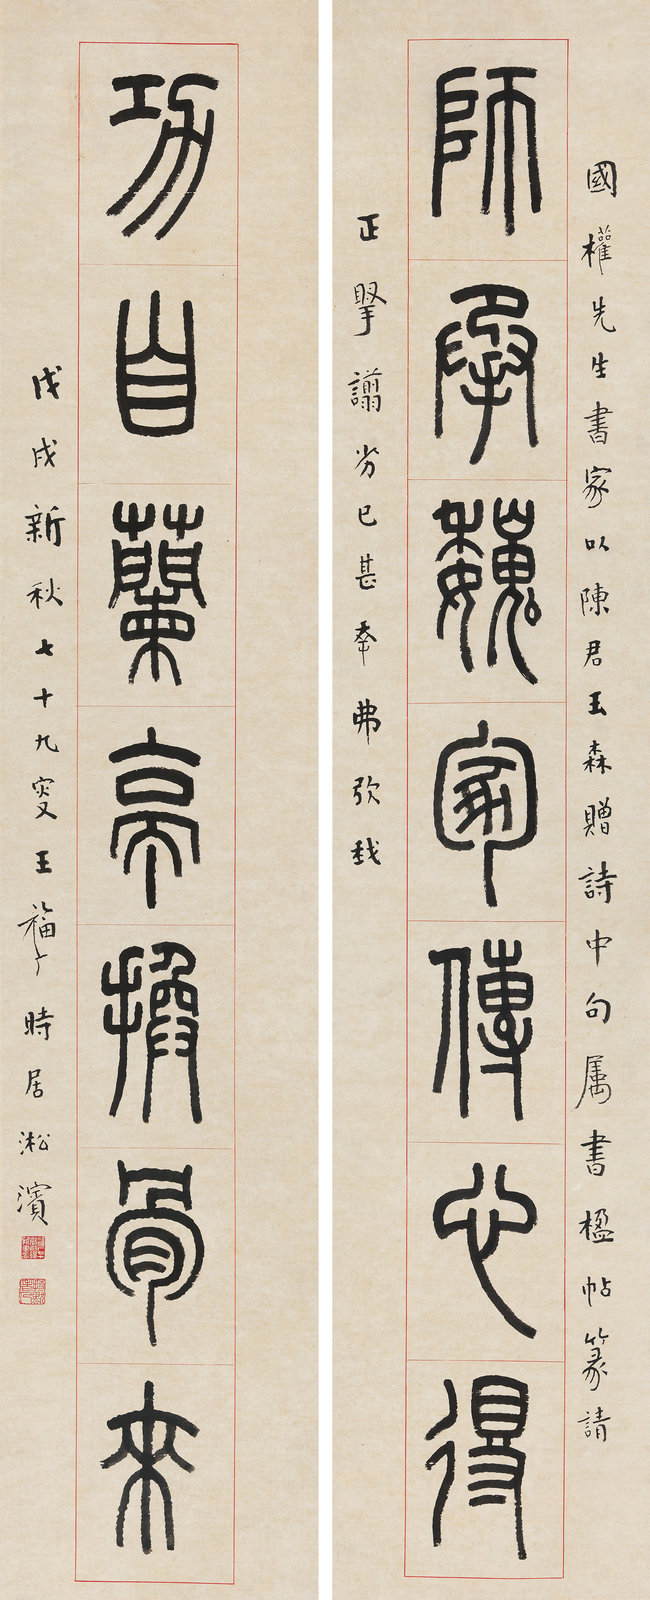 國權先生書家以陳君玉森贈詩中句属書楹帖篆請
師承魏家傳心得
正掔謭劣已甚幸弗弞我
功自蘭亭換骨來
戊戌新秋七十九叟王福厂時居淞濱